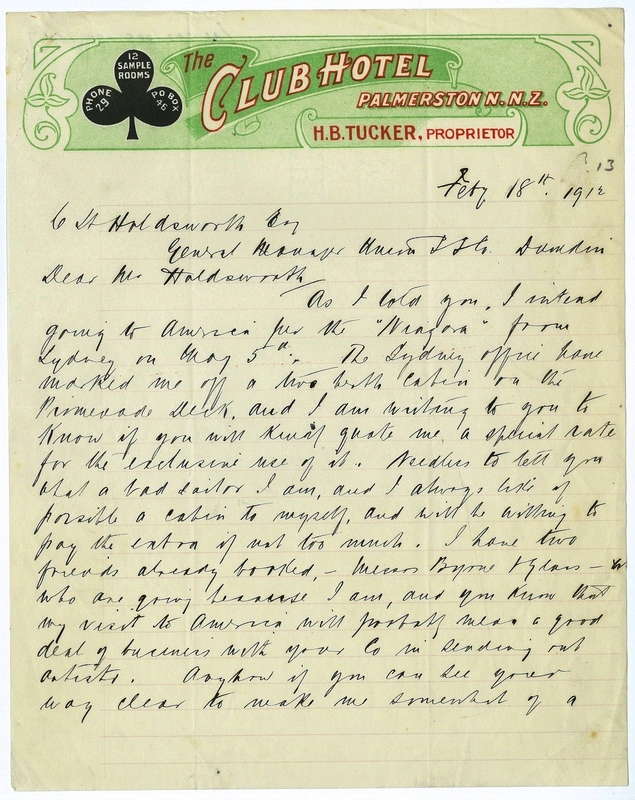 12
SAMPLE
ROOMS
PHONE
29
PO BOX
46
The
CLUB HOTEL
PALMERSTON N. N.Z.
H.B. TUCKER, PROPRIETOR
13
Feby 18th. 191
C Holdsworth Esq
General Manager Union S S Co. Dunedin
Dear Mr Holdsworth
As I told you, I intend
going to America per the "Niagara" from
Sydney on May 5th. The Sydney office have
marked me off a two berth cabin on the
Promenade Deck, and I am writing to you to
know if you will kindly quote me a special rate
for the exclusive use of it. Needless to tell you
what a bad sailor I am, and I always like if
possible a cabin to myself, and will be willing to
pay the extra if not too much. I have two
friends already booked, - Messrs Byrne &
who are going because I am, and you know that
my visit to America will probably mean a good
deal of business with your Co in sending out
artists. Anyhow if you can see your
way clear to make me somewhat of a